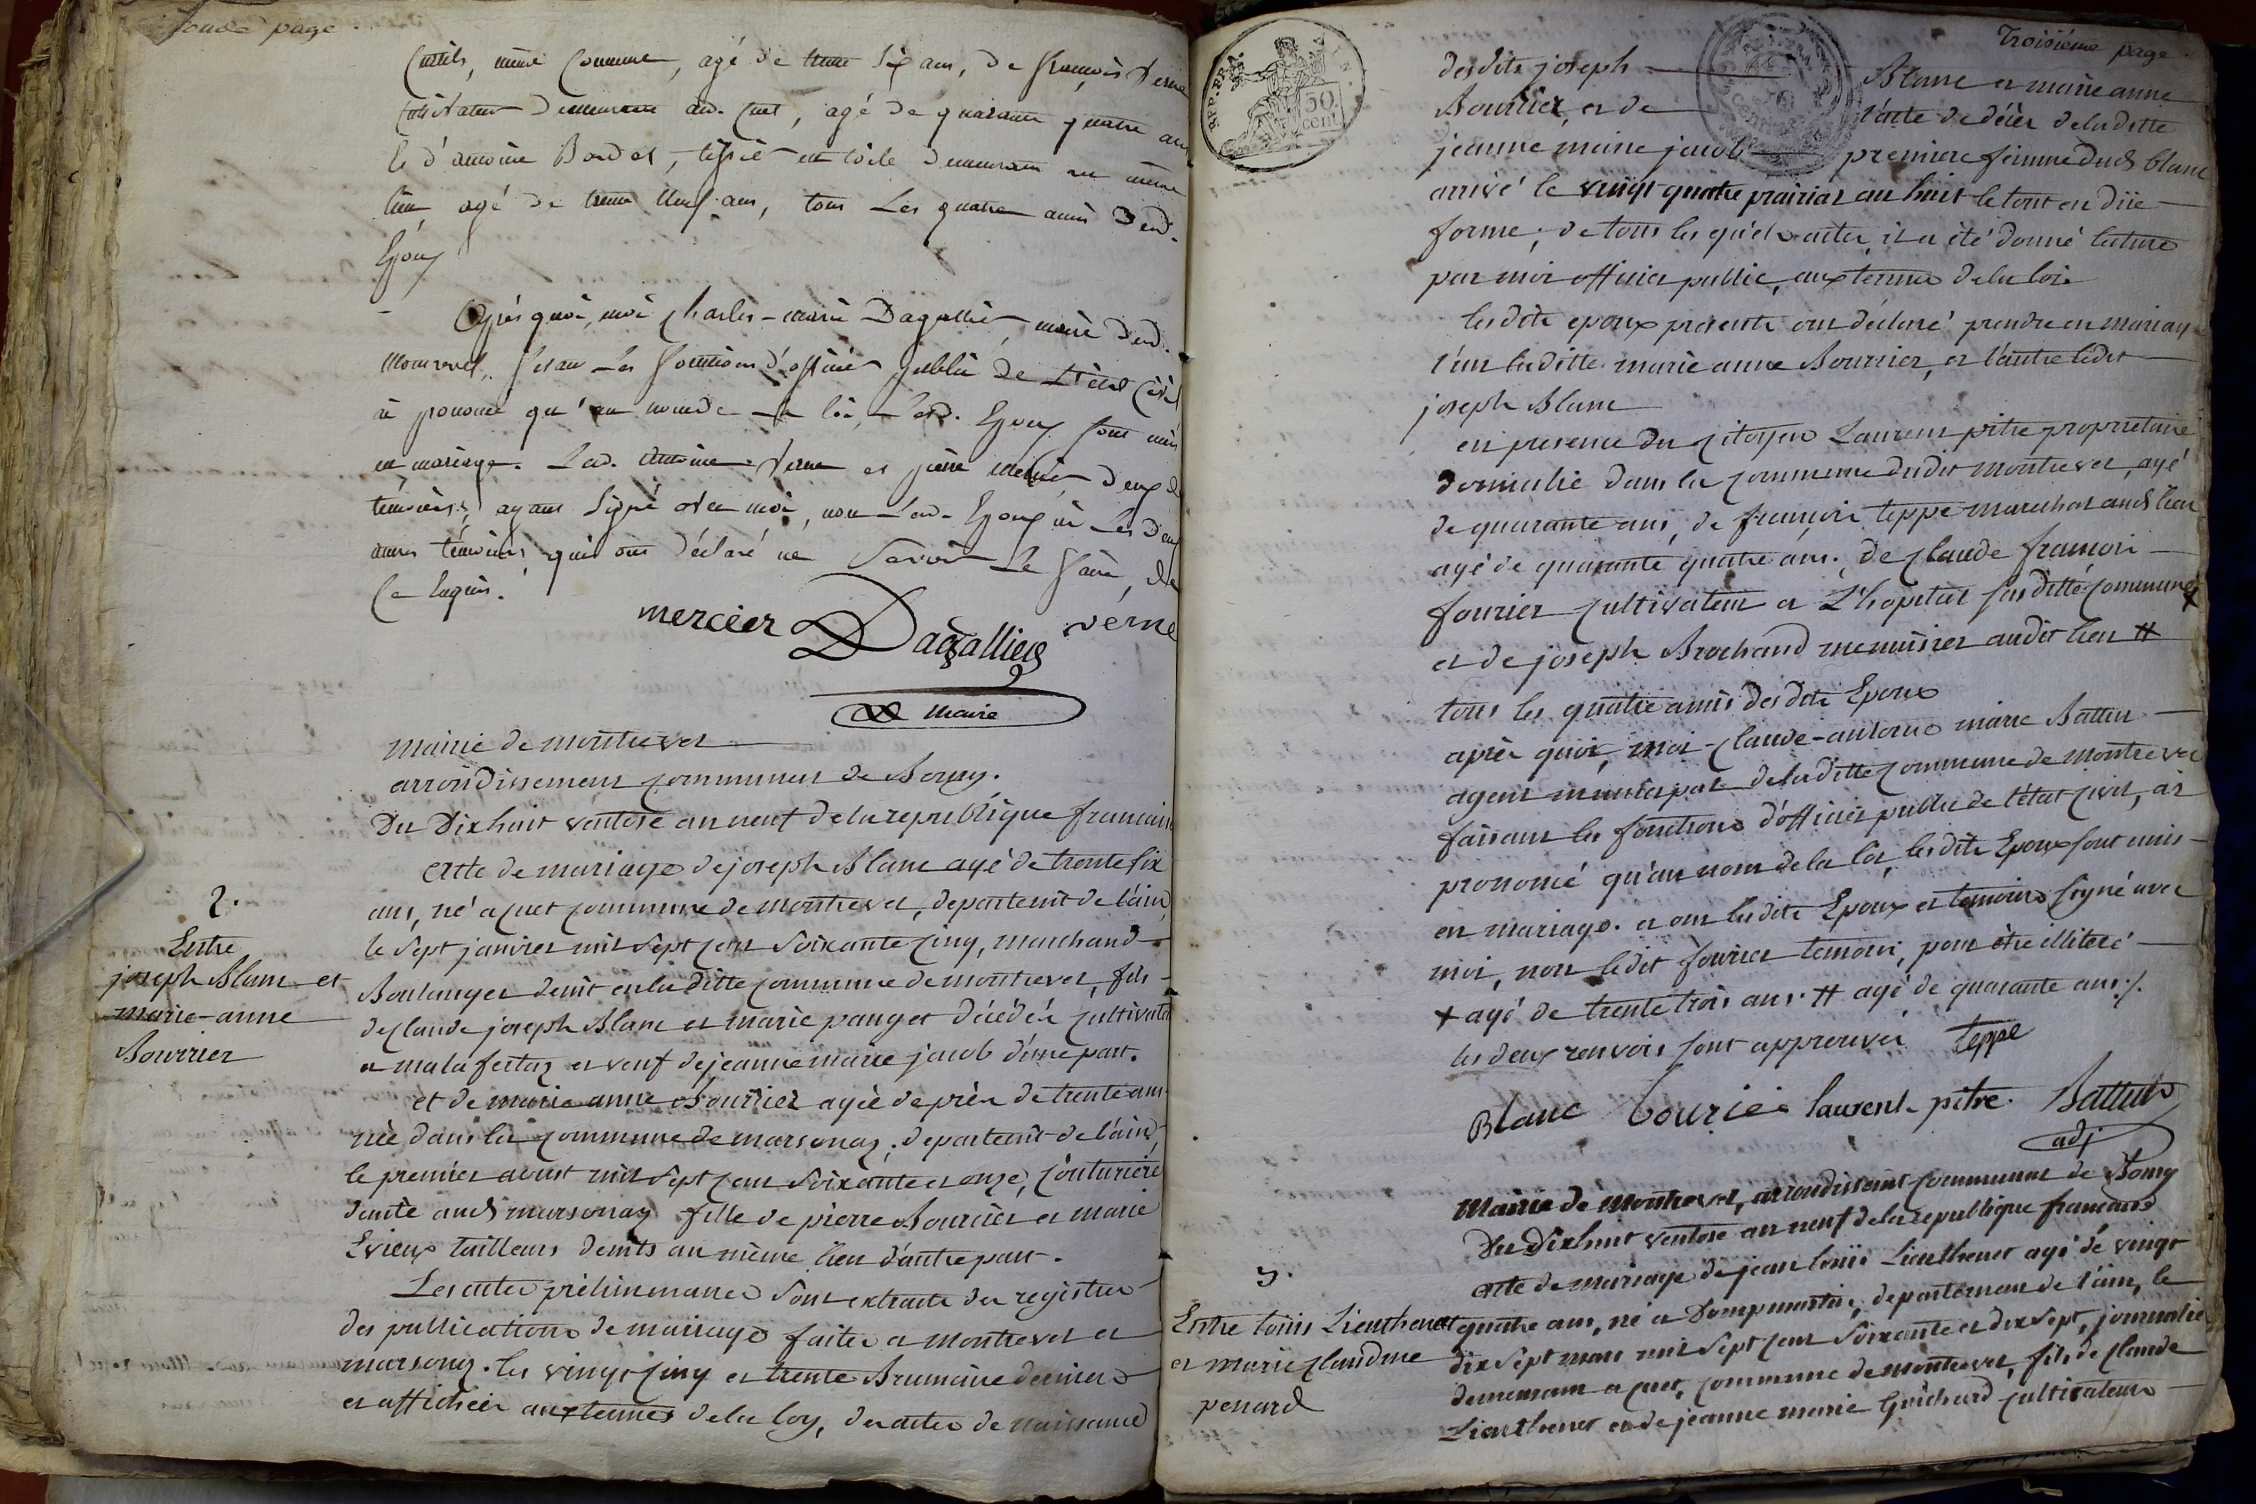 page
Curtils, même Commune, agé de trente Six ans, de françois Verne
Cultivateur demeurant aud. Cuet, agé de quarante quatre ans
& d'antoine Bordet, tissier en toile demeurant au même
lieu, agé de trente neuf ans, tous Les quatre amis Desd.
Epoux
Après quoi, moi Charles-marie Dagallier, maire dud.
Montrevel, faisant Les fonctions d'officier public de L'état Civil
ai prononcé qu'au nom de la loi, Lesd. Epoux sont unis
en mariage. Led. antoine Verne et pierre mercier deux des
témoins, ayant Signé avec moi, non Lesd. Epoux ni Les deux
autres témoins, qui ont déclaré ne Savoir Le faire, de
Ce Enquis.
mercier Dagallier verne
maire
Mairie de montrevel
arrondissement communal de Bourg.
Du Dixhuit ventose an neuf de la republique francaise
2.
Entre
joseph Blanc et
marie-anne
Bourrier
acte de mariage de joseph Blanc agé de trente six
ans, né a Cuet commune de montrevel, departemt de l'ain,
le sept janvier mil sept cent soixante cinq, marchand
Boulanger demt en la ditte commune de montrevel, fils
de claude joseph Blanc et marie panget décédés cultivateurs
a malafertaz et veuf de jeanne marie jacob d'une part.
et de marie anne Bourrier agée de près de trente ans
née dans la commune de marsonaz, departemt de l'ain,
le premier avust mil sept cent soixante et onze, couturiere
demte aud marsonaz fille de pierre Bourrier et marie
Evieux tailleurs demts au même lieu d'autre part.
Les actes préliminaires sont extraits des registres
des publications de mariage faites a montrevel et
marsonaz. les vingt cinq et trente Brumaire dernier
et affichés aux termes de la loy, des actes de naissance
Troisiéme page
REP. FRA.
TIM.
50.
cent.
desdits joseph Blanc et marie anne
Bourrier, et de l'acte de décès de la ditte
jeanne marie jacob premiere femme dud blanc
arrivé le vingt quatre prairial an huit le tout en due
forme; de tous les quels actes il a été donné lecture
par moi officier public, aux termes de la loi
lesdits epoux presents ont déclaré prendre en mariage
l'un laditte marie anne Bourrier, et l'autre ledit
joseph Blanc
en presence du Citoyen Laurent pitre proprietaire
domicilié dans la commune dudit montrevel, agé
de quarante ans, de françois teppe marechal aud lieu
agé de quarante quatre ans. de claude francois
fourier cultivateur a L'hopital susditte commune +
et de joseph Brochand menuisier audit lieu #
tous les quatre amis desdits Epoux
après quoi, moi claude-antoine marie Battin
agent municipal de la ditte commune de montrevel
faisant les fonctions d'officier public de l'état civil, ai
prononcé qu'au nom de la loi, lesdits Epoux sont unis
en mariage. et ont lesdits Epoux et temoins signé avec
moi, non ledit fourier temoin, pour être illiteré
+ agé de trente trois ans. # agé de quarante ans./.
les deux renvois sont approuvés teppe
Blanc bourier laurent pitre. Battin
adj
Mairie de Montrevel, arrondissemt communal de Bourg
Du Dixhuit ventose an neuf de la republique francaise
3.
Entre louis Lienthenet
et marie claudine
penard
acte de mariage de jean louis Lienthenet agé de vingt
quatre ans, né a Dompmartin, departement de l'ain, le
dix sept mars mil sept cent soixante et dix sept, journalier
demeurant a cuet, commune de montrevel, fils de claude
Lienthenet et de jeanne marie Guichard cultivateurs